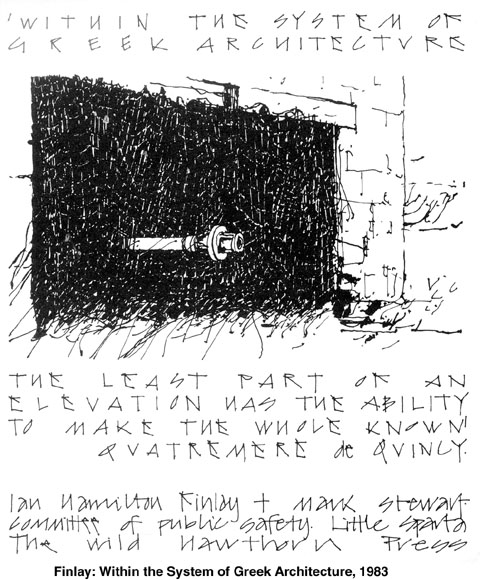 'WITHIN THE SYSTEM OF
GREEK ARCHITECTVRE
THE LEAST PART OF AN
ELEVATION HAS THE ABILITY
TO MAKE THE WHOLE KNOWN'
QVATREMERE de QVINCY.
Ian Hamilton Finlay + Mark Stewart.
committee of public safety. Little Sparta
The Wild Hawthorn Press
Finlay: Within the System of Greek Architecture, 1983